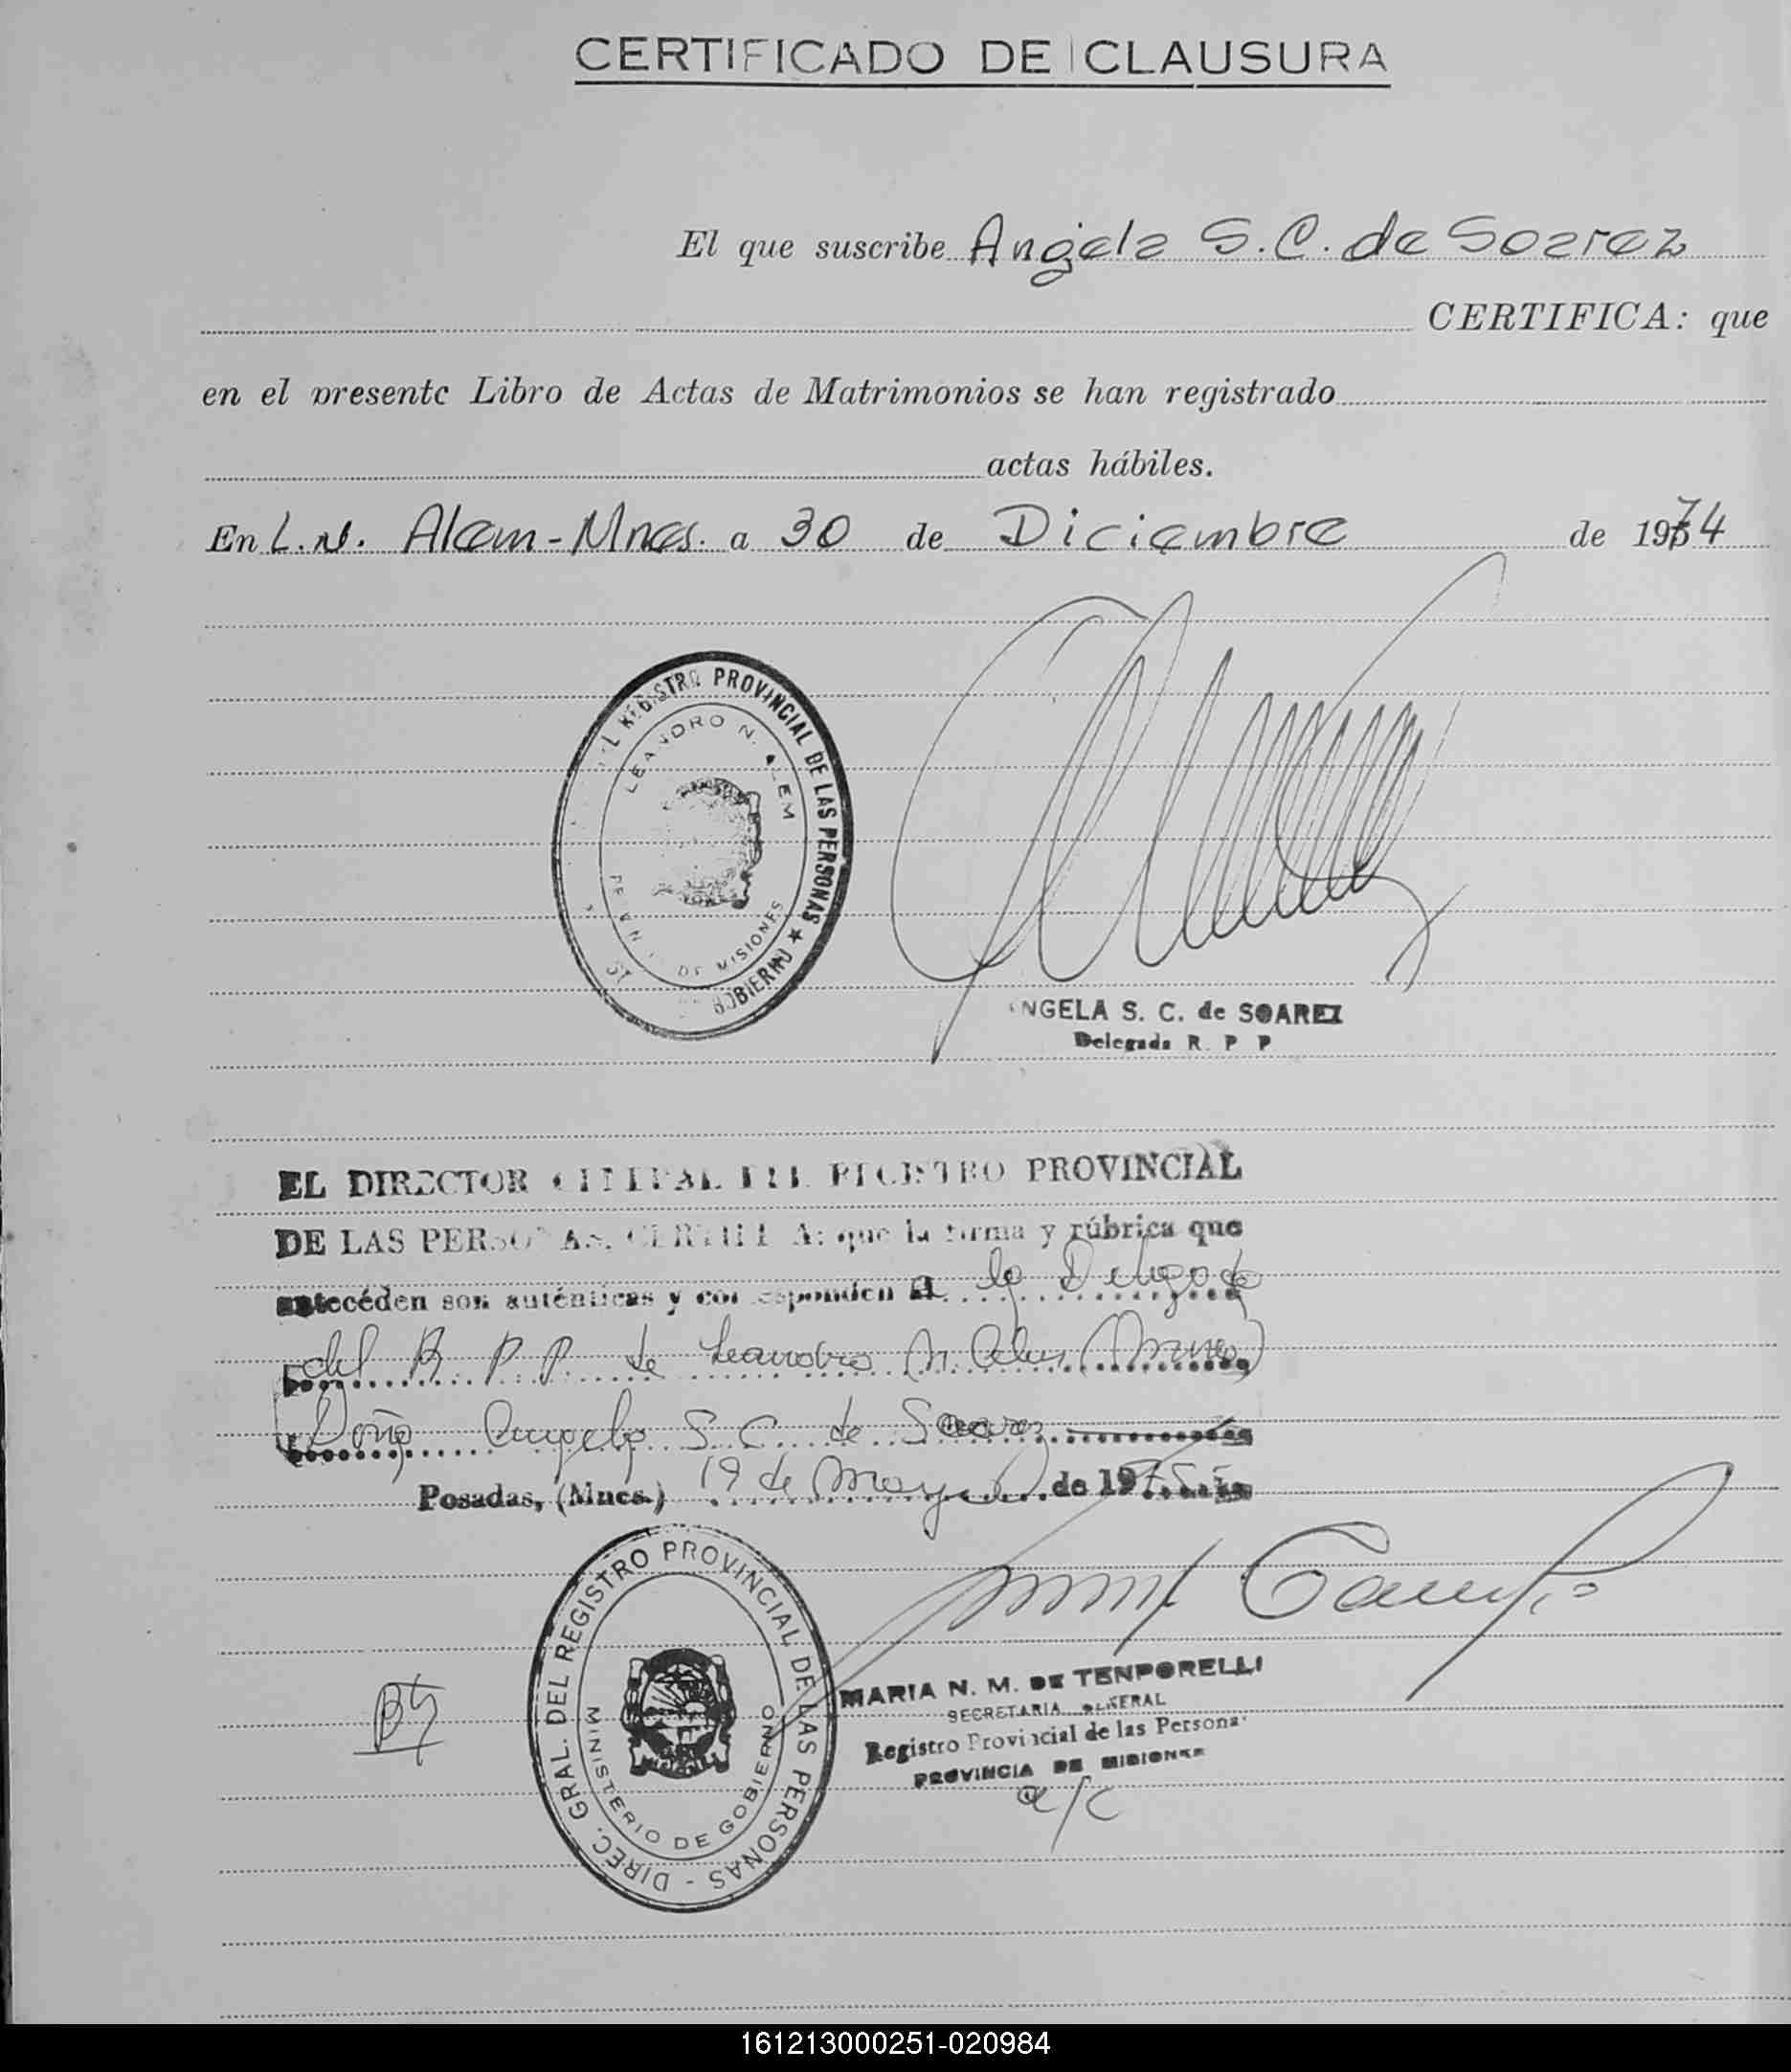 CERTIFICADO DE CLAUSURA
El que suscribe Angela S.C. de Soarez
CERTIFICA: que
en el presente Libro de Actas de Matrimonios se han registrado
actas hábiles.
En L.N. Alem-Mnes. a 30 de Diciembre de 1974
REGISTRO PROVINCIAL DE LAS PERSONAS ★
GOBIERNO
LEANDRO N. ALEM
DE MISIONES
ANGELA S. C. de SOAREZ
Delegada R. P P
EL DIRECTOR GENERAL DEL REGISTRO PROVINCIAL
DE LAS PERSONAS, CERTIFICA: que la firma y rúbrica que
antecéden son auténticas y corresponden a la Delegada
del R P P de Leandro N. Alem (Mnes)
Doña Angela S. C. de Soarez
Posadas, (Mnes.) 19 de Mayo de 1975
DIREC. GRAL. DEL REGISTRO PROVINCIAL DE LAS PERSONAS -
MINISTERIO DE GOBIERNO
MARIA N. M. DE TENPORELLI
SECRETARIA GENERAL
Registro Provincial de las Personas
PROVINCIA DE MISIONES
a/c
161213000251-020984